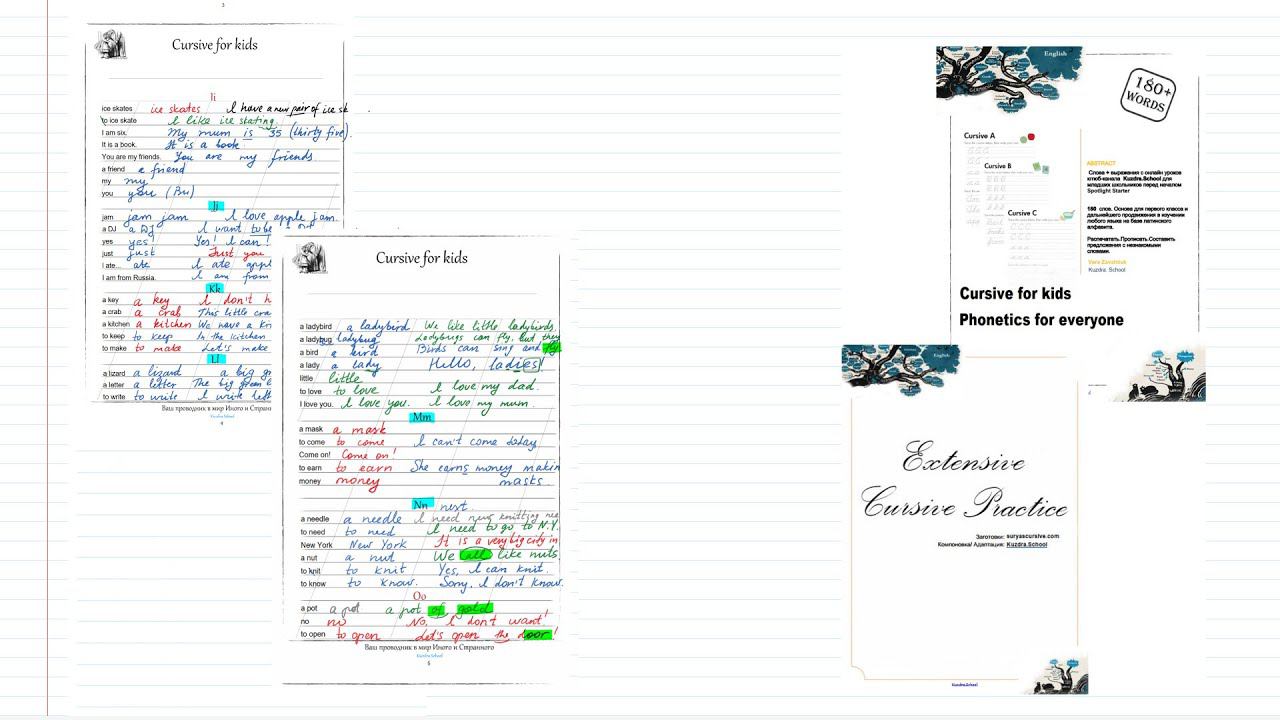 3
Cursive for kids
Ii
ice skates ice skates I have a new pair of ice sk
to ice skate I like ice skating.
I am six. My mum is 35 (thirty five).
It is a book. It is a book
You are my friends. You are my friends
a friend a friend
my
you you (Вы)
Jj
jam jam jam. I love jam.
yes yes!
just just Just you
I ate... ate I ate appl
I am from Russia. I am from
Kk
a key a key I don't h
a crab a crab This little cra
a kitchen a kitchen We have a ki
to keep to keep In the kitchen
to make to make Let's make
Ll
a lizard a lizard
a letter a letter The big gree
to write to write I write lett
Ваш проводник в мир Иного и Странн
Kuzdra.School
4
Cursive for
a ladybird a ladybird We like little ladybirds.
a ladybug ladybug Ladybugs can fly, but they
a bird a bird Birds can sing and fly
a lady a lady Hello, ladies!
little little
to love to love I love my dad.
I love you. I love you. I love my mum.
Mm
a mask a mask
to come to come I can't come today
Come on! Come on!
to earn to earn She earns money makin
money money masts.
Nn next
a needle a needle I need new knitting nee
to need to need I need to go to N.Y.
New York New York It is a very big city in
a nut a nut We all like nuts
to knit to knit Yes, I can knit.
to know to know. Sorry, I don't know.
Oo
a pot a pot a pot of gold
no no No, I don't want!
to open to open Let's open the door!
Ваш проводник в мир Иного и Странного
Kuzdra.School
6
English
180+
WORDS
Cursive A
Cursive B
Cursive C
ABSTRACT
Слова + выражения с онлайн уроков
ютюб-канала Kuzdra.School для
младших школьников перед началом
Spotlight Starter
180 слов. Основа для первого класса и
дальнейшего продвижения в изучении
любого языка на базе латинского
алфавита.
Распечатать.Прописать.Составить
предложения с незнакомыми
словами.
Vera Zavchiuk
Kuzdra. School
Cursive for kids
Phonetics for everyone
English
Extensive
Cursive Practice
Заготовки: suryascursive.com
Компоновка/ Адаптация: Kuzdra.School
Kuzdra.School